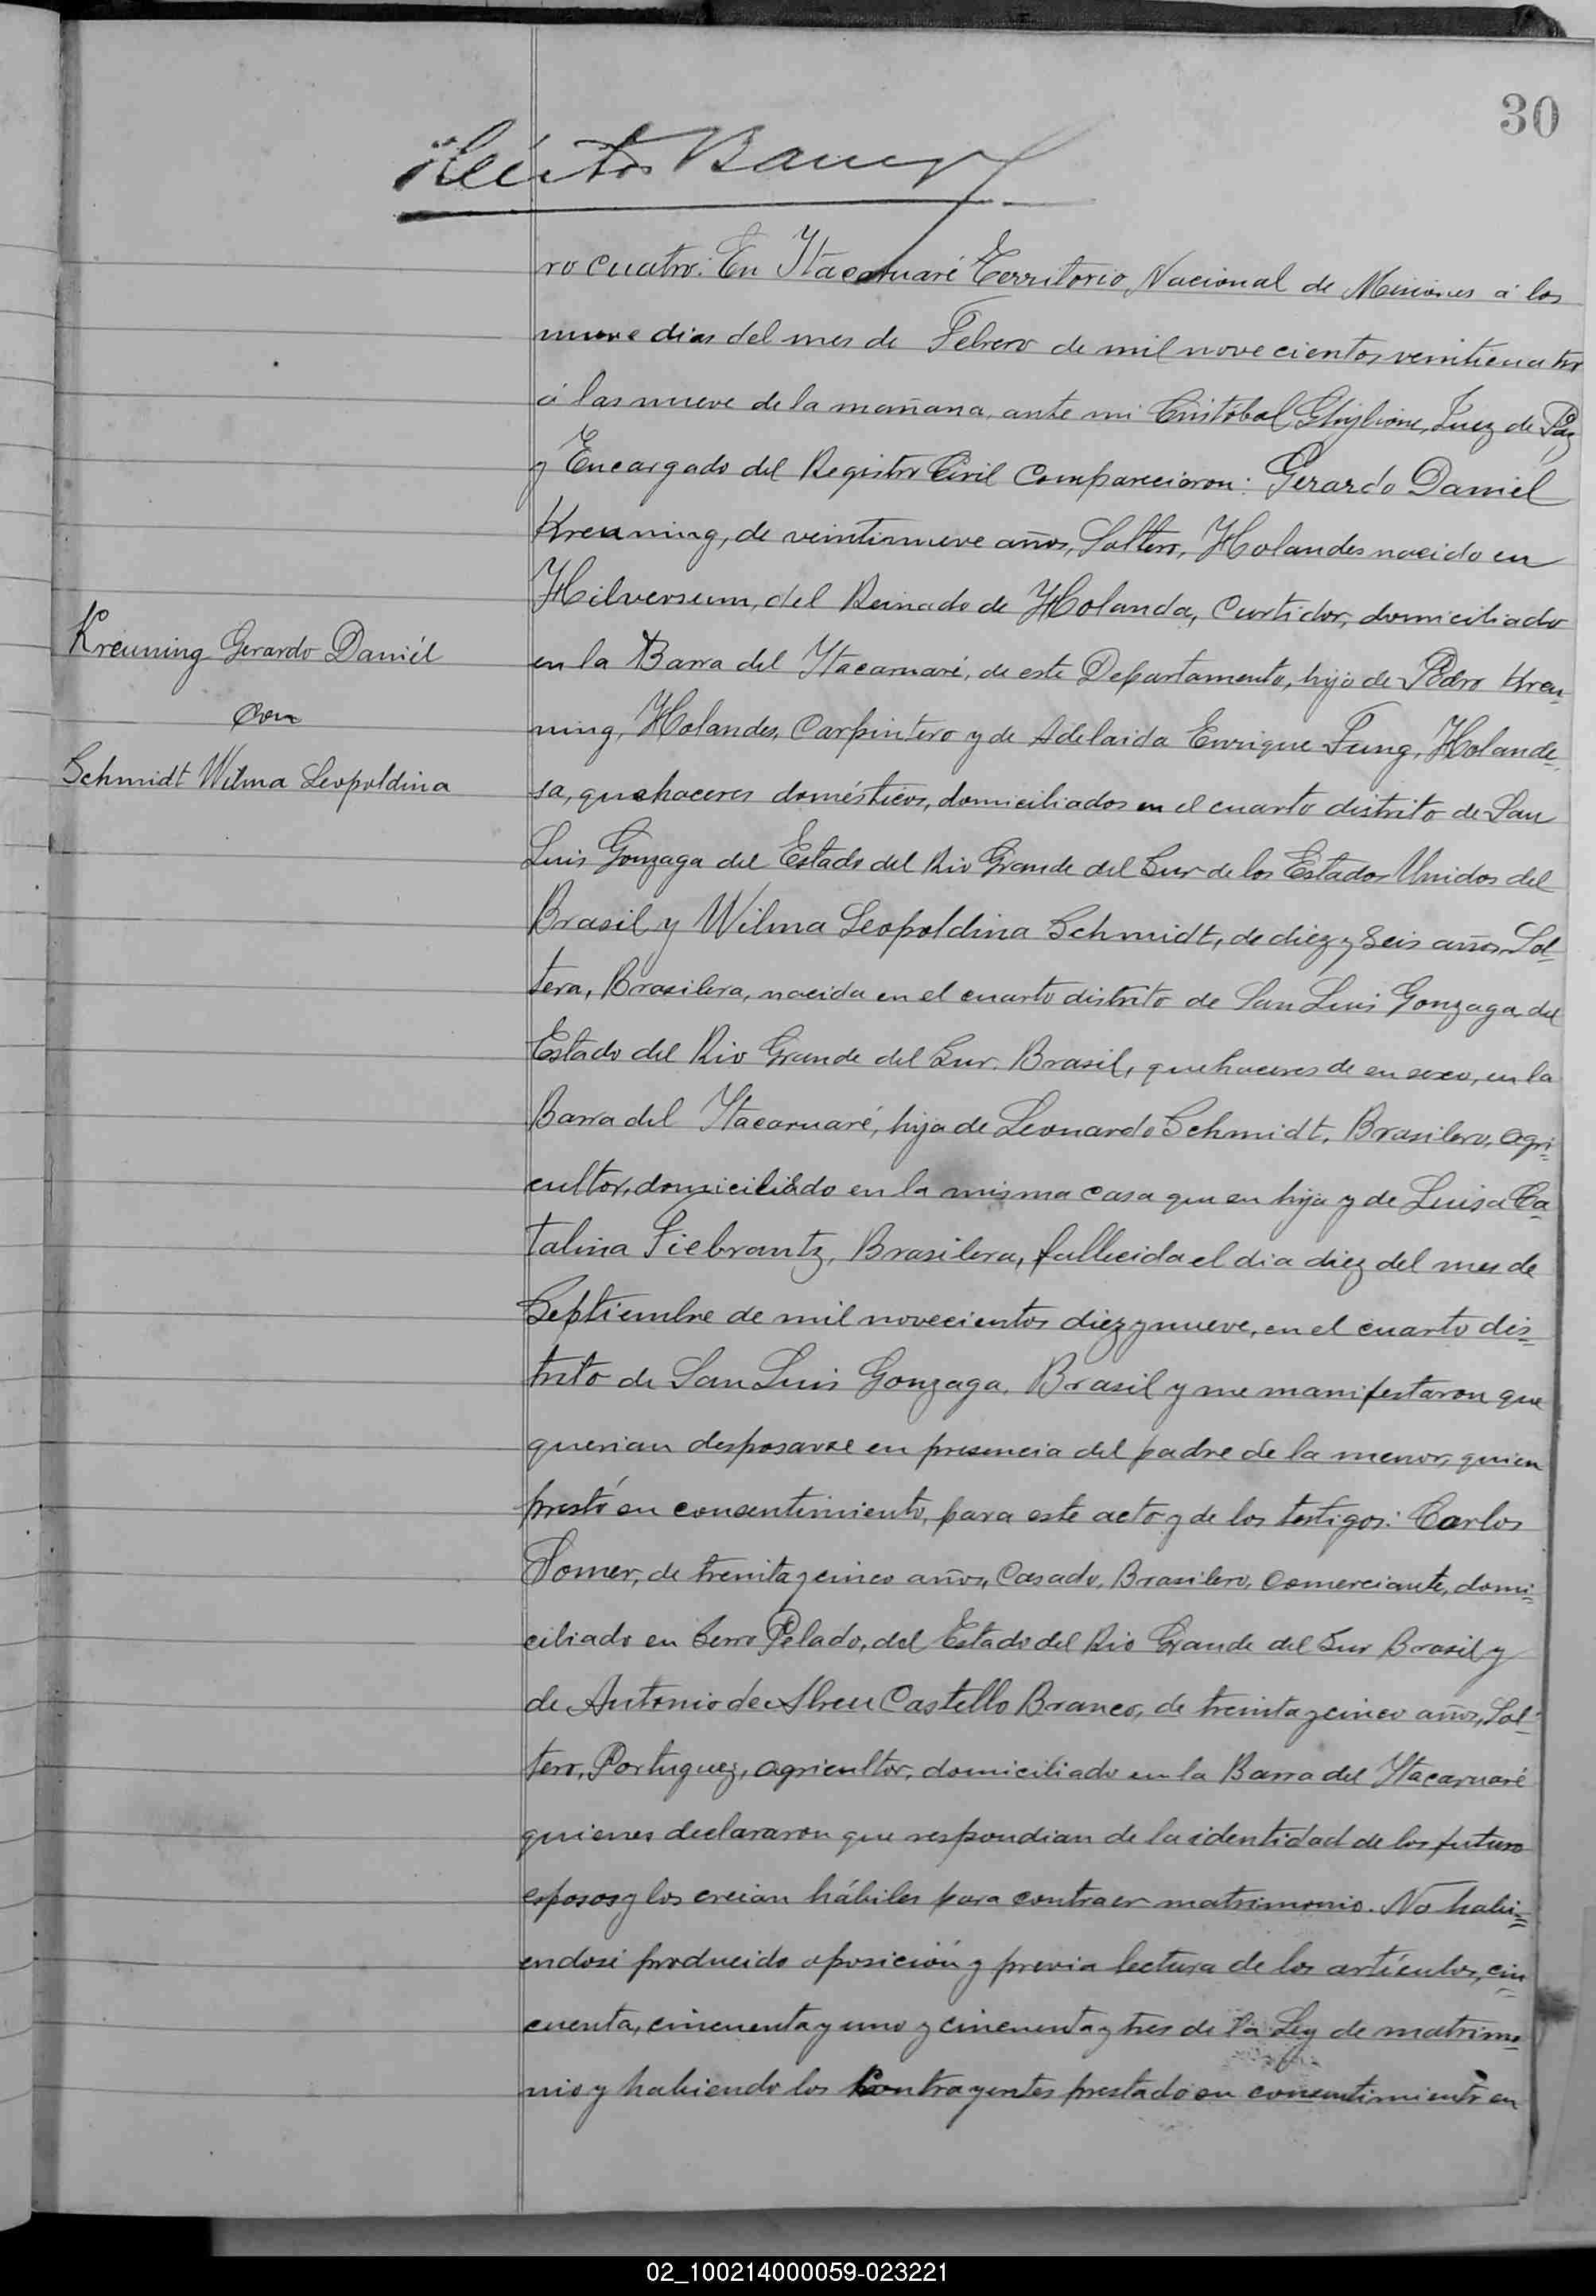 30
ro cuatro: En Ytacaruaré Territorio Nacional de Misiones á los
nueve dias del mes de Febrero de mil novecientos veinticuatro
á las nueve de la mañana, ante mi Cristobal Ghiglione, Juez de Paz
y Encargado del Registro Civil Comparecieron: Gerardo Daniél
Kreuning, de veintinueve años, Soltero, Holandes nacido en
Hilverseum, del Reinado de Holanda, Curtidor, domiciliado
Kreuning Gerardo Daniél
con
Schmidt Wilma Leopoldina
en la Barra del Ytacaruaré, de este Departamento, hijo de Pedro Kreu-
ning, Holandes, Carpintero y de Adelaida Enrique Fung, Holande-
sa, quehaceres domésticos, domiciliados en el cuarto distrito de San
Luis Gonzaga del Estado del Rio Grande del Sur de los Estados Unidos del
Brasil y Wilma Leopoldina Schmidt, de diez y seis años, Sol-
tera, Brasilera, nacida en el cuarto distrito de San Luis Gonzaga del
Estado del Rio Grande del Sur. Brasil, quehaceres de su sexo, en la
Barra del Ytacaruaré, hija de Leonardo Schmidt, Brasilero, agri-
cultor, domiciliado en la misma casa que su hija y de Luisa Ca-
talina Siebrantz, Brasilera, fallecida el dia diez del mes de
Septiembre de mil novecientos diez y nueve, en el cuarto dis-
trito de San Luis Gonzaga, Brasil y me manifestaron que
querian desposarse en presencia del padre de la menor, quien
prestó su consentimiento, para este acto y de los testigos: Carlos
Somer, de treinta y cinco años, Casado, Brasilero, Comerciante, domi-
ciliado en Serro Pelado, del Estado del Rio Grande del Sur Brasil y
de Antonio de Abreu Castello Branco, de treinta y cinco años, Sol-
tero, Portuguez, agricultor, domiciliado en la Barra del Ytacaruaré
quienes declararon que respondian de la identidad de los futuro
esposos y los creian hábiles para contraer matrimonio. No habi-
endose producido oposición y previa lectura de los artículos, cin-
cuenta, cincuenta y uno y cincuenta y tres de la Ley de matrimo-
nio y habiendo los Contrayentes prestado su consentimiento en
02_100214000059-023221